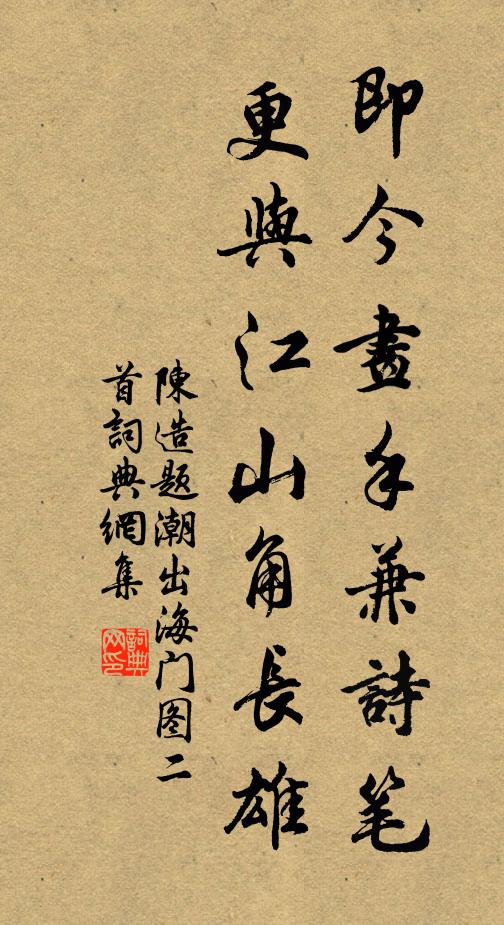 即今畫手兼詩笔
更與江山角長雄
陳造題潮出海门图二
首詞典網集
詞典
网印